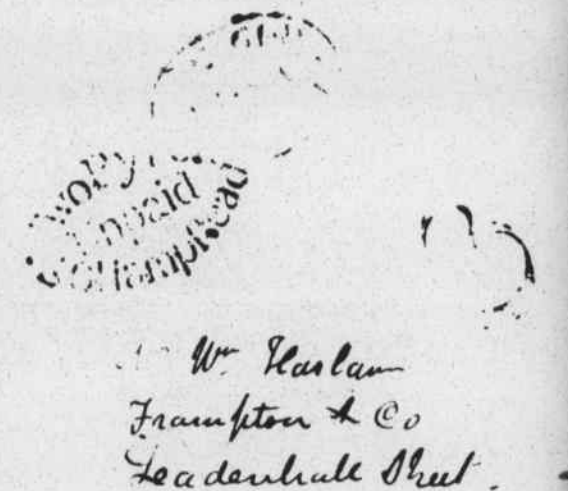 TwoPy
Unpaid
SOHampstead
Wm Haslam
Frampton & Co
Leadenhall Street.